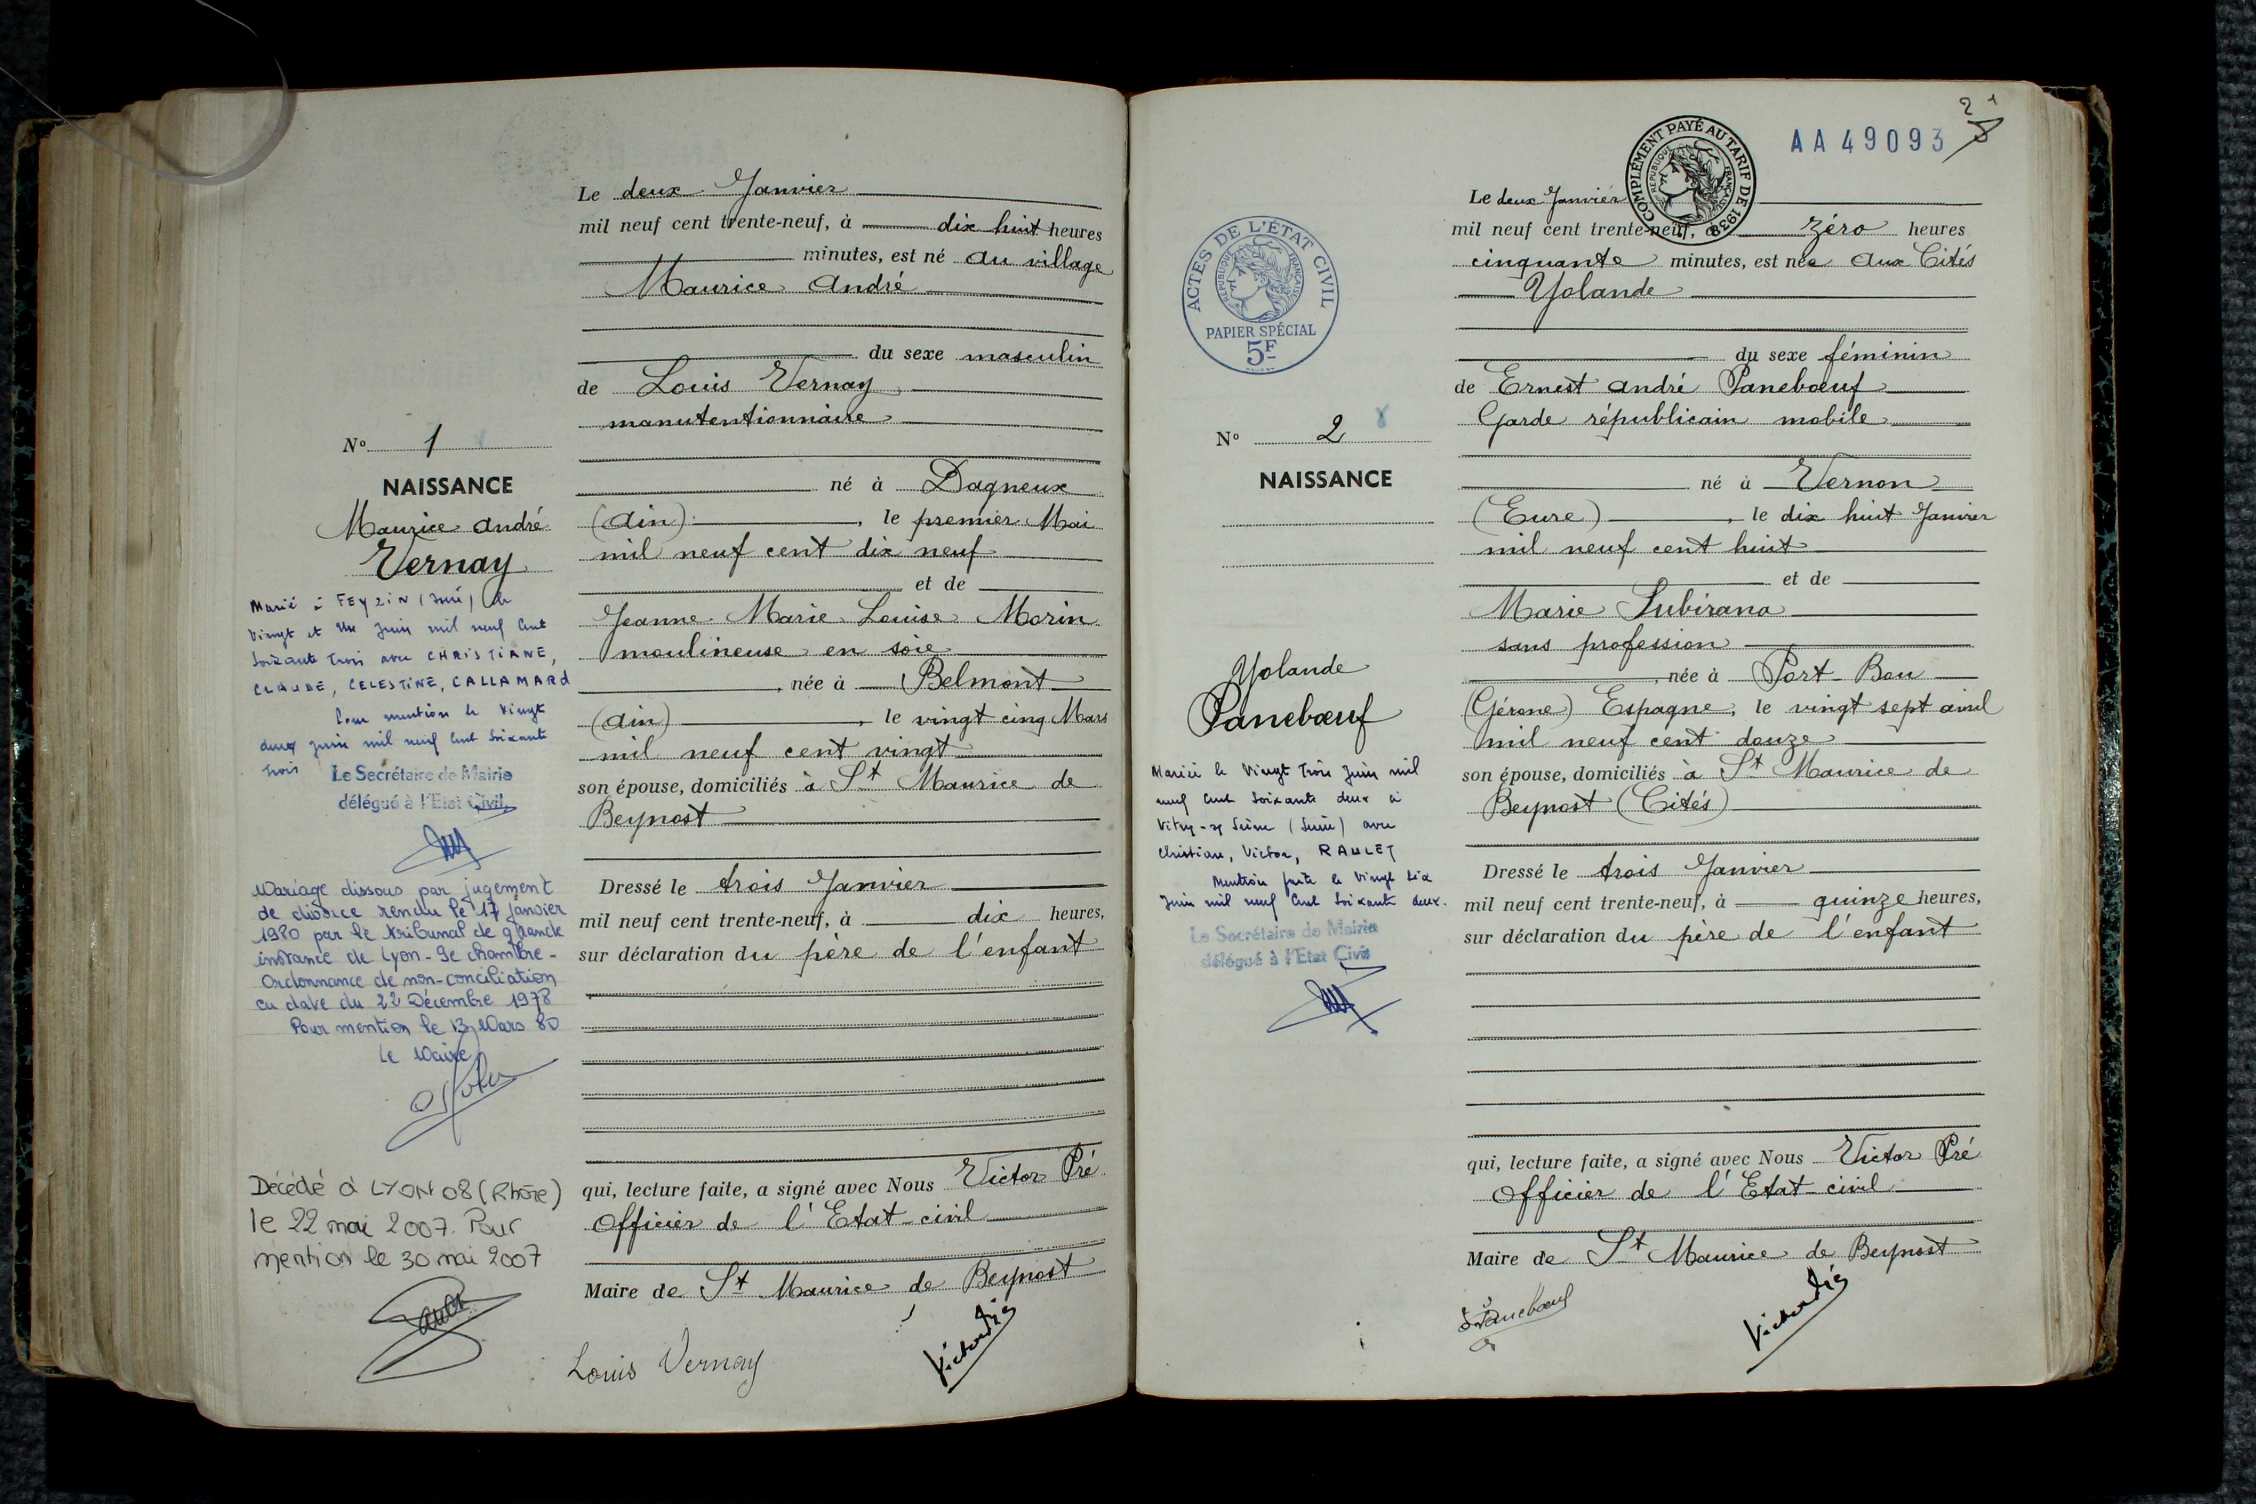 Le deux Janvier
mil neuf cent trente-neuf, à dix huit heures
minutes, est né au village
Maurice André
du sexe masculin
de Louis Vernay
manutentionnaire
né à Dagneux
(Ain), le premier Mai
mil neuf cent dix neuf
et de
Jeanne Marie Louise Morin
moulineuse en soie
, née à Belmont
(Ain), le vingt cinq Mars
mil neuf cent vingt
son épouse, domiciliés à St Maurice de
Beynost
Dressé le trois Janvier
mil neuf cent trente-neuf, à dix heures,
sur déclaration du père de l'enfant
qui, lecture faite, a signé avec Nous Victor Pré
Officier de l'Etat-civil
Maire de St Maurice de Beynost
Louis Vernay
No 1
NAISSANCE
Maurice André
Vernay
Marié à FEYZIN (Isère) le
vingt et un Juin mil neuf cent
soixante trois avec CHRISTIANE,
CLAUDE, CELESTINE, CALLAMARD
Pour mention le vingt
deux juin mil neuf cent soixante
trois
Le Secrétaire de Mairie
délégué à l'Etat Civil,
Mariage dissous par jugement
de divorce rendu le 17 janvier
1980 par le tribunal de grande
instance de Lyon - 9e chambre -
Ordonnance de non-conciliation
en date du 22 Décembre 1978
Pour mention le 13 Mars 80
Le Maire
Décédé à LYON 08 (Rhône)
le 22 mai 2007. Pour
mention le 30 mai 2007
AA 49093
2
COMPLÉMENT PAYÉ AU TARIF DE 1938
RÉPUBLIQUE FRANÇAISE
ACTES DE L'ÉTAT CIVIL
RÉPUBLIQUE FRANÇAISE
PAPIER SPÉCIAL
5F
Le deux Janvier
mil neuf cent trente-neuf, zéro heures
cinquante minutes, est née aux Cités
Yolande
du sexe féminin
de Ernest André Panebœuf
Garde républicain mobile
né à Vernon
(Eure), le dix huit Janvier
mil neuf cent huit
et de
Marie Subirana
sans profession
, née à Port-Bou
(Gérone) Espagne, le vingt sept avril
mil neuf cent douze
son épouse, domiciliés à St Maurice de
Beynost (Cités)
Dressé le trois Janvier
mil neuf cent trente-neuf, à quinze heures,
sur déclaration du père de l'enfant
qui, lecture faite, a signé avec Nous Victor Pré
Officier de l'Etat-civil
Maire de St Maurice de Beynost
Panebœuf
No 2
NAISSANCE
Yolande
Panebœuf
Mariée le vingt trois Juin mil
neuf cent soixante deux à
Vitry-sr Seine (Seine) avec
Christian, Victor, RAULET
Mention faite le vingt six
Juin mil neuf cent soixante deux.
Le Secrétaire de Mairie
délégué à l'Etat Civil